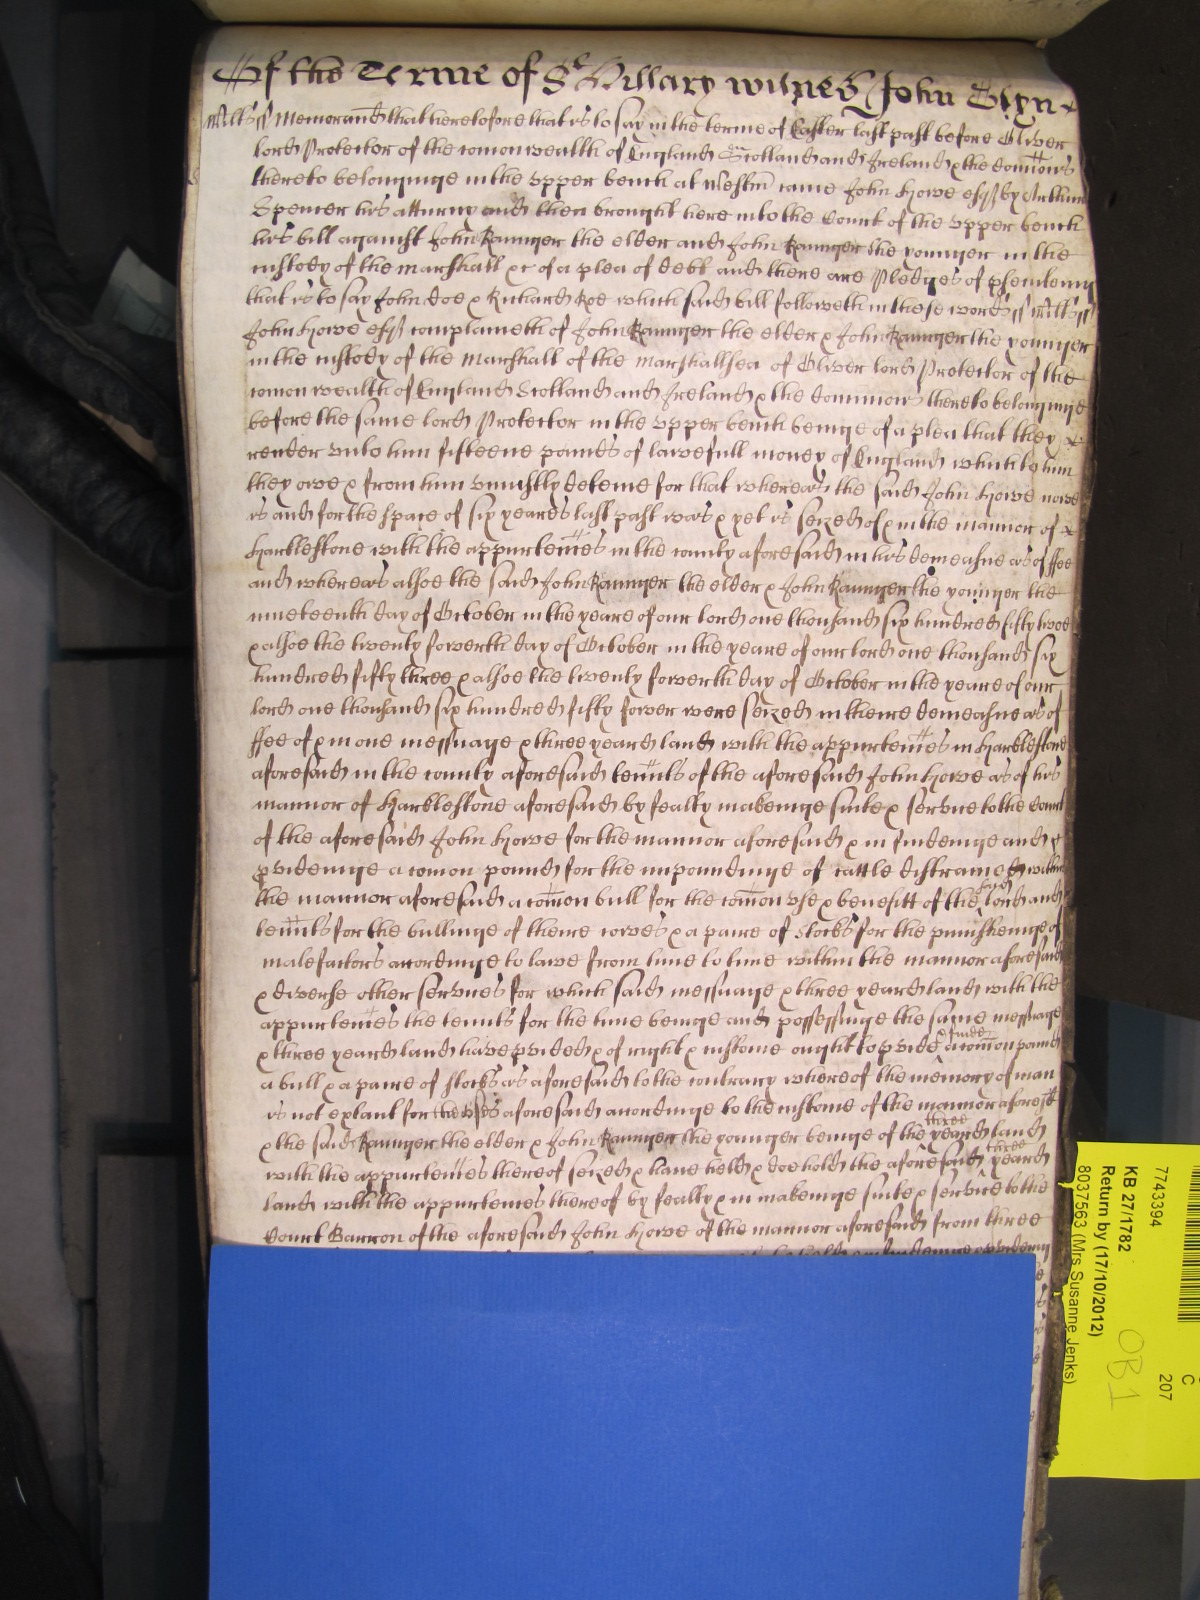 Of the Terme of St Hillary witnes John Glyn
Wiltss ss Memorand that heretofore that is to say in the terme of Easter last past before Oliver
lord Protector of the comon wealth of England Scotland and Ireland & the domions
thereto belonginge in the upper bench at Westm came John Howe esq by Arthur
Spencer his atturny and then brought here into the Court of the upper bench
his bill against John Raunger the elder and John Raunger the younger in the
custody of the marshall &c of a plea of debt and there are Pledges of psecuting
that is to say John doe & Richard Roe which said bill followeth in these words ss Wiltss ss
John Howe esq complaineth of John Raunger the elder & John Raunger the younger
in the custody of the marshall of the marshallsea of Oliver lord Protector of the
comon wealth of England Scotland and Ireland & the dominions thereto belonginge
before the same lord Protector in the upper bench beinge of a plea that they
render unto him fifteene pounds of lawfull money of England which to him
they owe & from him uniustly deteine for that whereas the said John Howe nowe
is and for the space of six yeares last past was & yet is seized of & in the mannor of
Harblestone with the appurtences in the county aforesaid in his demeasne as of ffee
and whereas alsoe the said John Raunger the elder & John Raunger the younger the
nineteenth day of October in the yeare of our lord one thousand six hundred fifty twoe
& alsoe the twenty fowerth day of October in the yeare of our lord one thousand six
hundred fifty three & alsoe the twenty fowerth day of October in the yeare of our
lord one thousand six hundred fifty fower were seized in theire demeasne as of
ffee of & in one messuage & three yeard land with the appurtences in Harblestone
aforesaid in the county aforesaid tennts of the aforesaid John Howe as of his
mannor of Harblestone aforesaid by fealty makeinge suite & service to the Court
of the aforesaid John Howe for the mannor aforesaid & in findeinge and
pvideinge a comon pound for the impoundinge of cattle distrained within
the mannor aforesaid a comon bull for the comon use & benefitt of the said lord and
tennts for the bullinge of theire cowes & a paire of stocks for the punisheinge of
malefactors accordinge to lawe from time to time within the mannor aforesaid
& diverse other services for which said messuage & three yeard land with the
appurtences the tennts for the time beinge and possessinge the same messuage
& three yeard land have pvided & of right & custome ought to pvide & finde a comon pound
a bull & a paire of stocks as aforesaid to the contrary whereof the memory of man
is not extant for the uses aforesaid accordinge to the custome of the mannor aforesd
& the said Raunger the elder & John Raunger the younger beinge of the three yeard land
with the appurtences thereof seized & have held & doe hold the aforesaid three yeard
land with the appurtences thereof by fealty & in makeinge suite & service to the
Court Barron of the aforesaid John Howe of the mannor aforesaid from three
7743394
KB 27/1782
Return by (17/10/2012)
8037563 (Mrs Susanne Jenks)
C
207
OB1